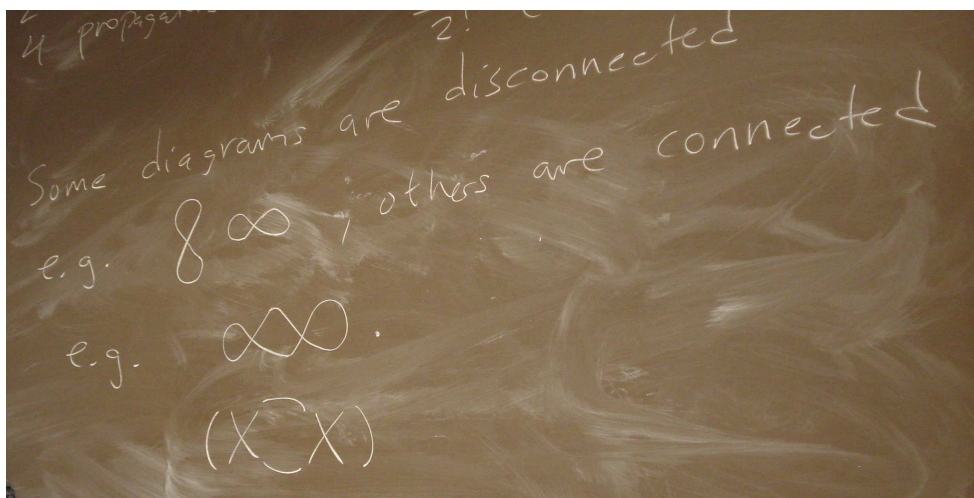 4 propaga
2!
Some diagrams are disconnected
e.g. 8 ∞ ; others are connected
e.g. ∞ .
(X X)